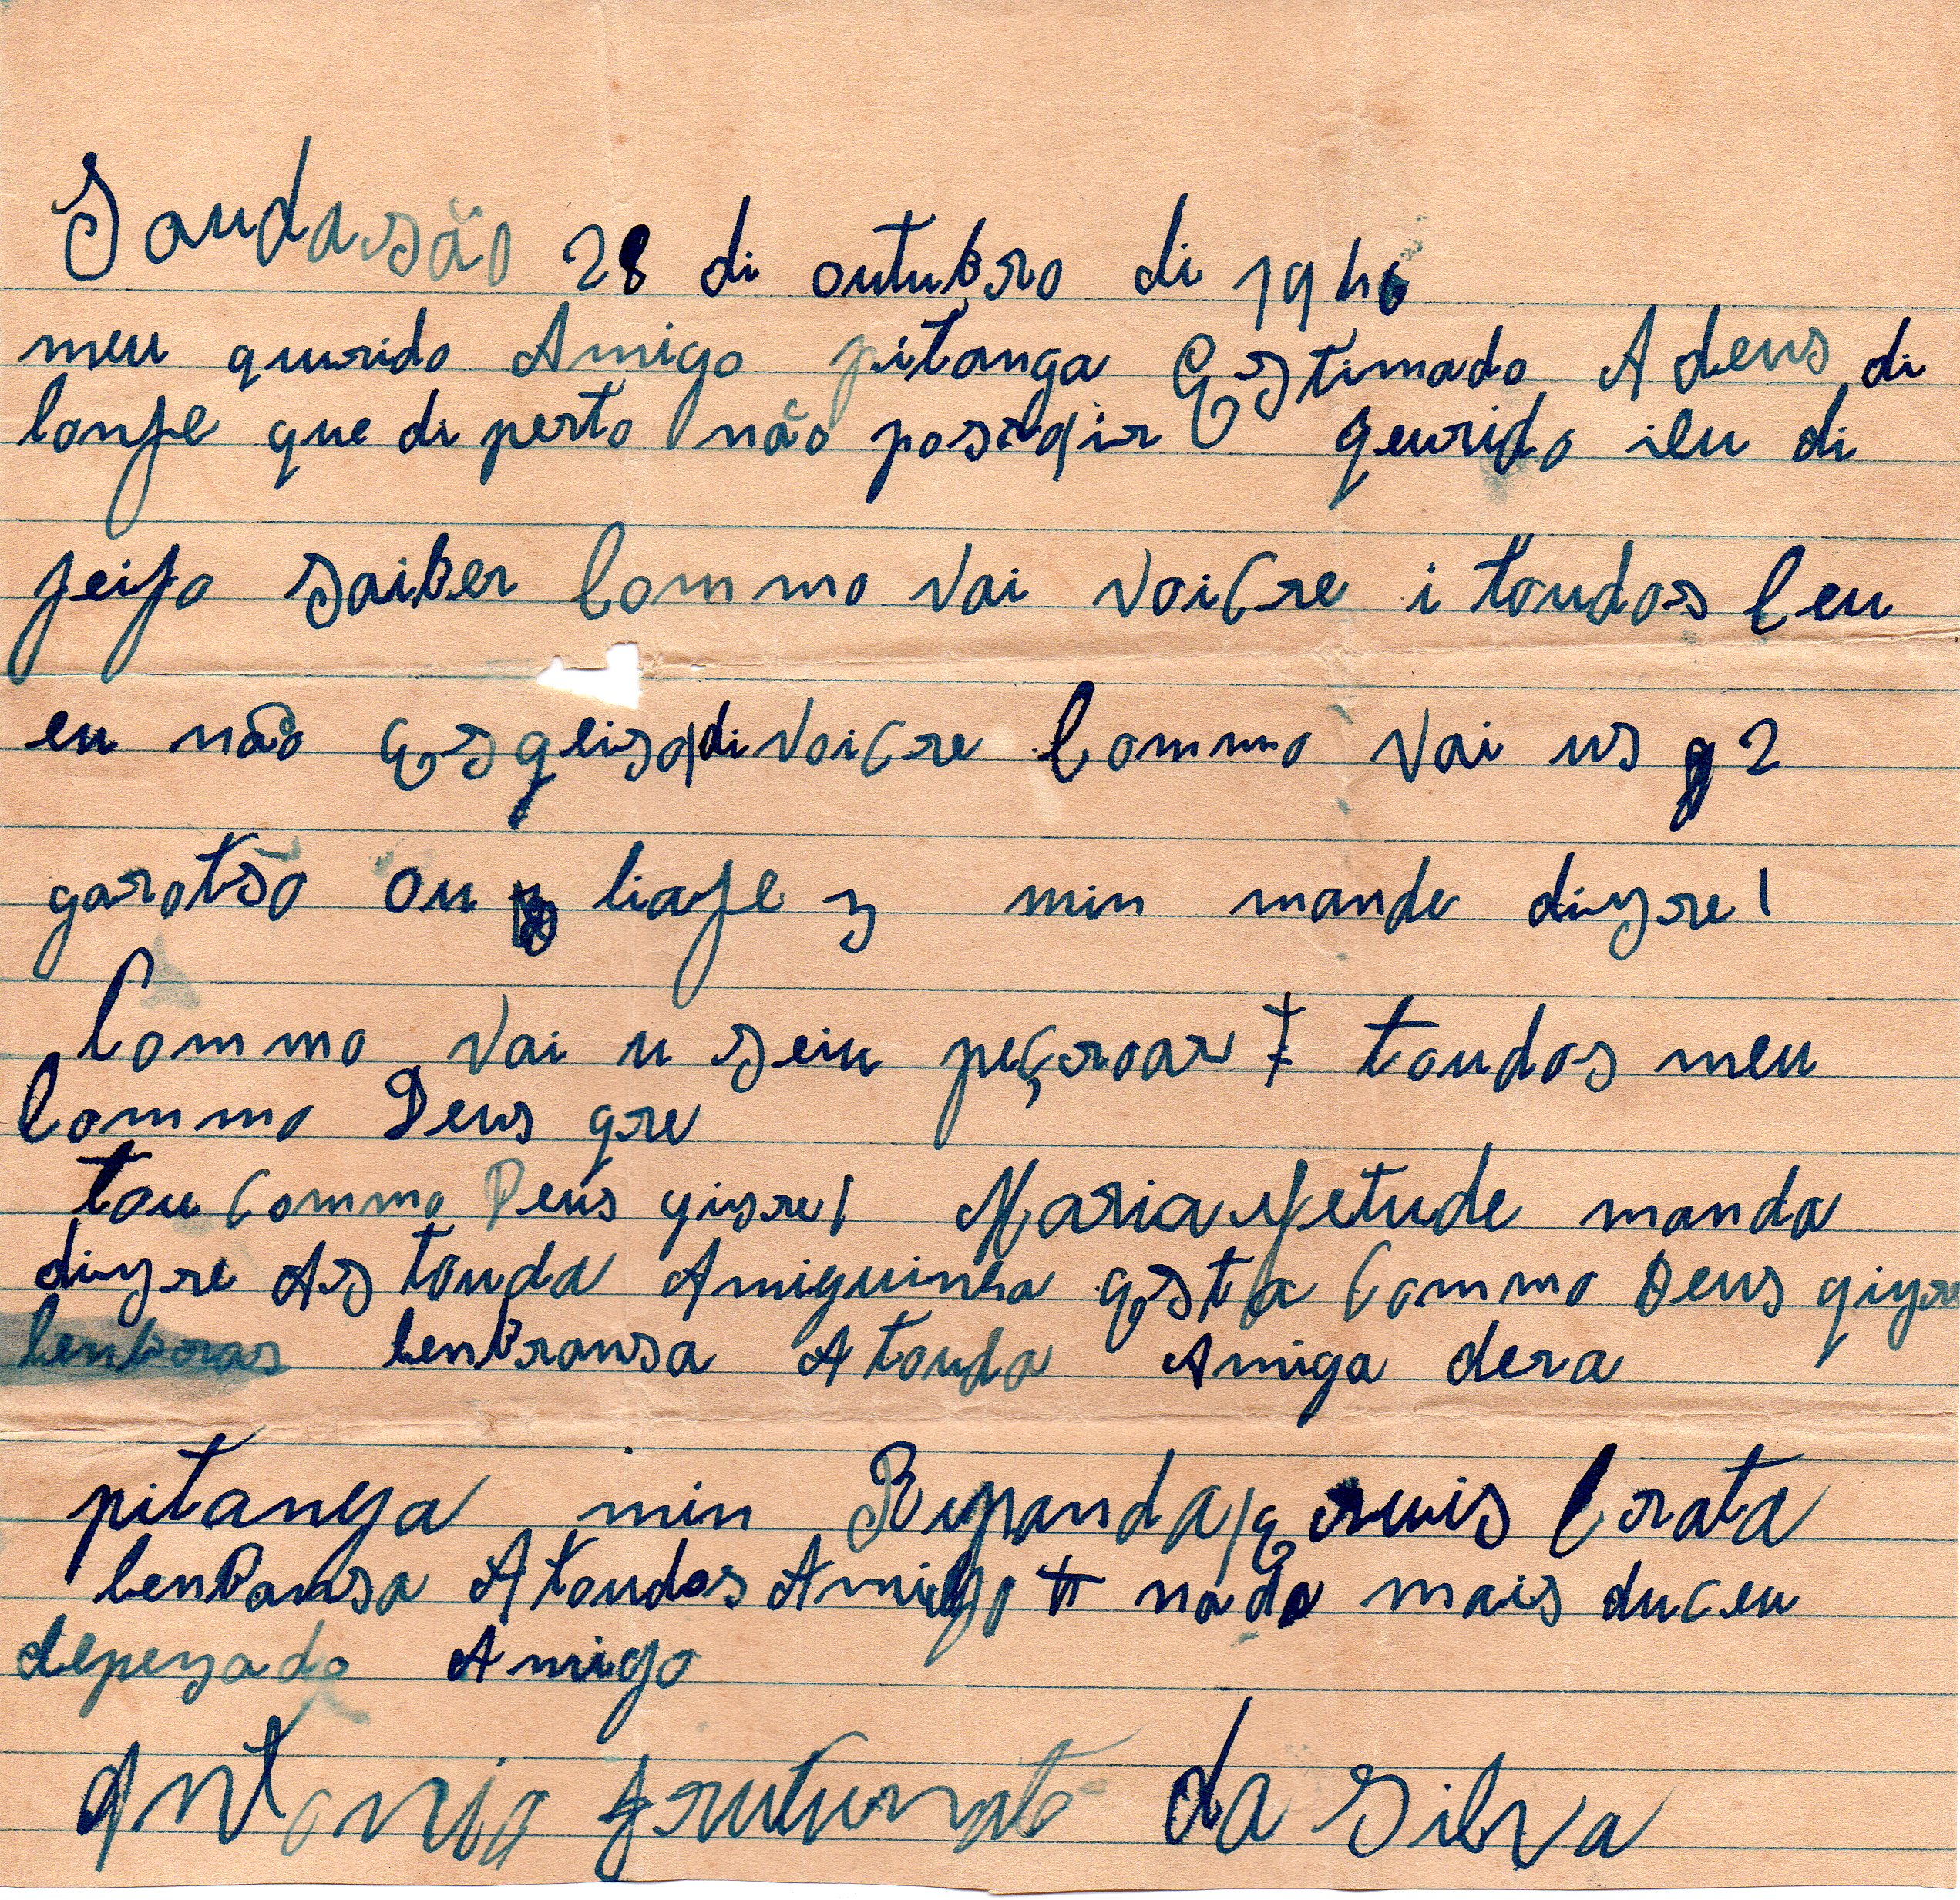 Saudasão 28 di outuBro di 1946
meu qurido Amigo pitanga Estimado A deus di
lonje que di perto não poso ir qeurido ieu di
jeijo saiBer Commo vai voiCre i toudos Ceu
eu não Esqeiso di voiCre Commo vai us 2
garotso ou liaje z min mande diyre!
Commo vai u seiu peçroar toudos meu
Commo Deus qre
tou Commo Deus qisre! Maria Netude manda
diyre As touda Amiguinha Esta Commo Deus qiyre
lenBransa A touda Amiga dera
pitanga min Crata
lenBansa A toudos Amigo nada mais du Ceu
depezado Amigo
Antonio frutunato da Silva